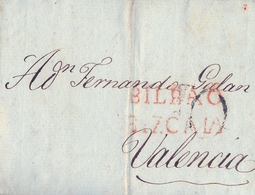 A Dn Fernando Galan
BILBAO
VIZCAIA
Valencia